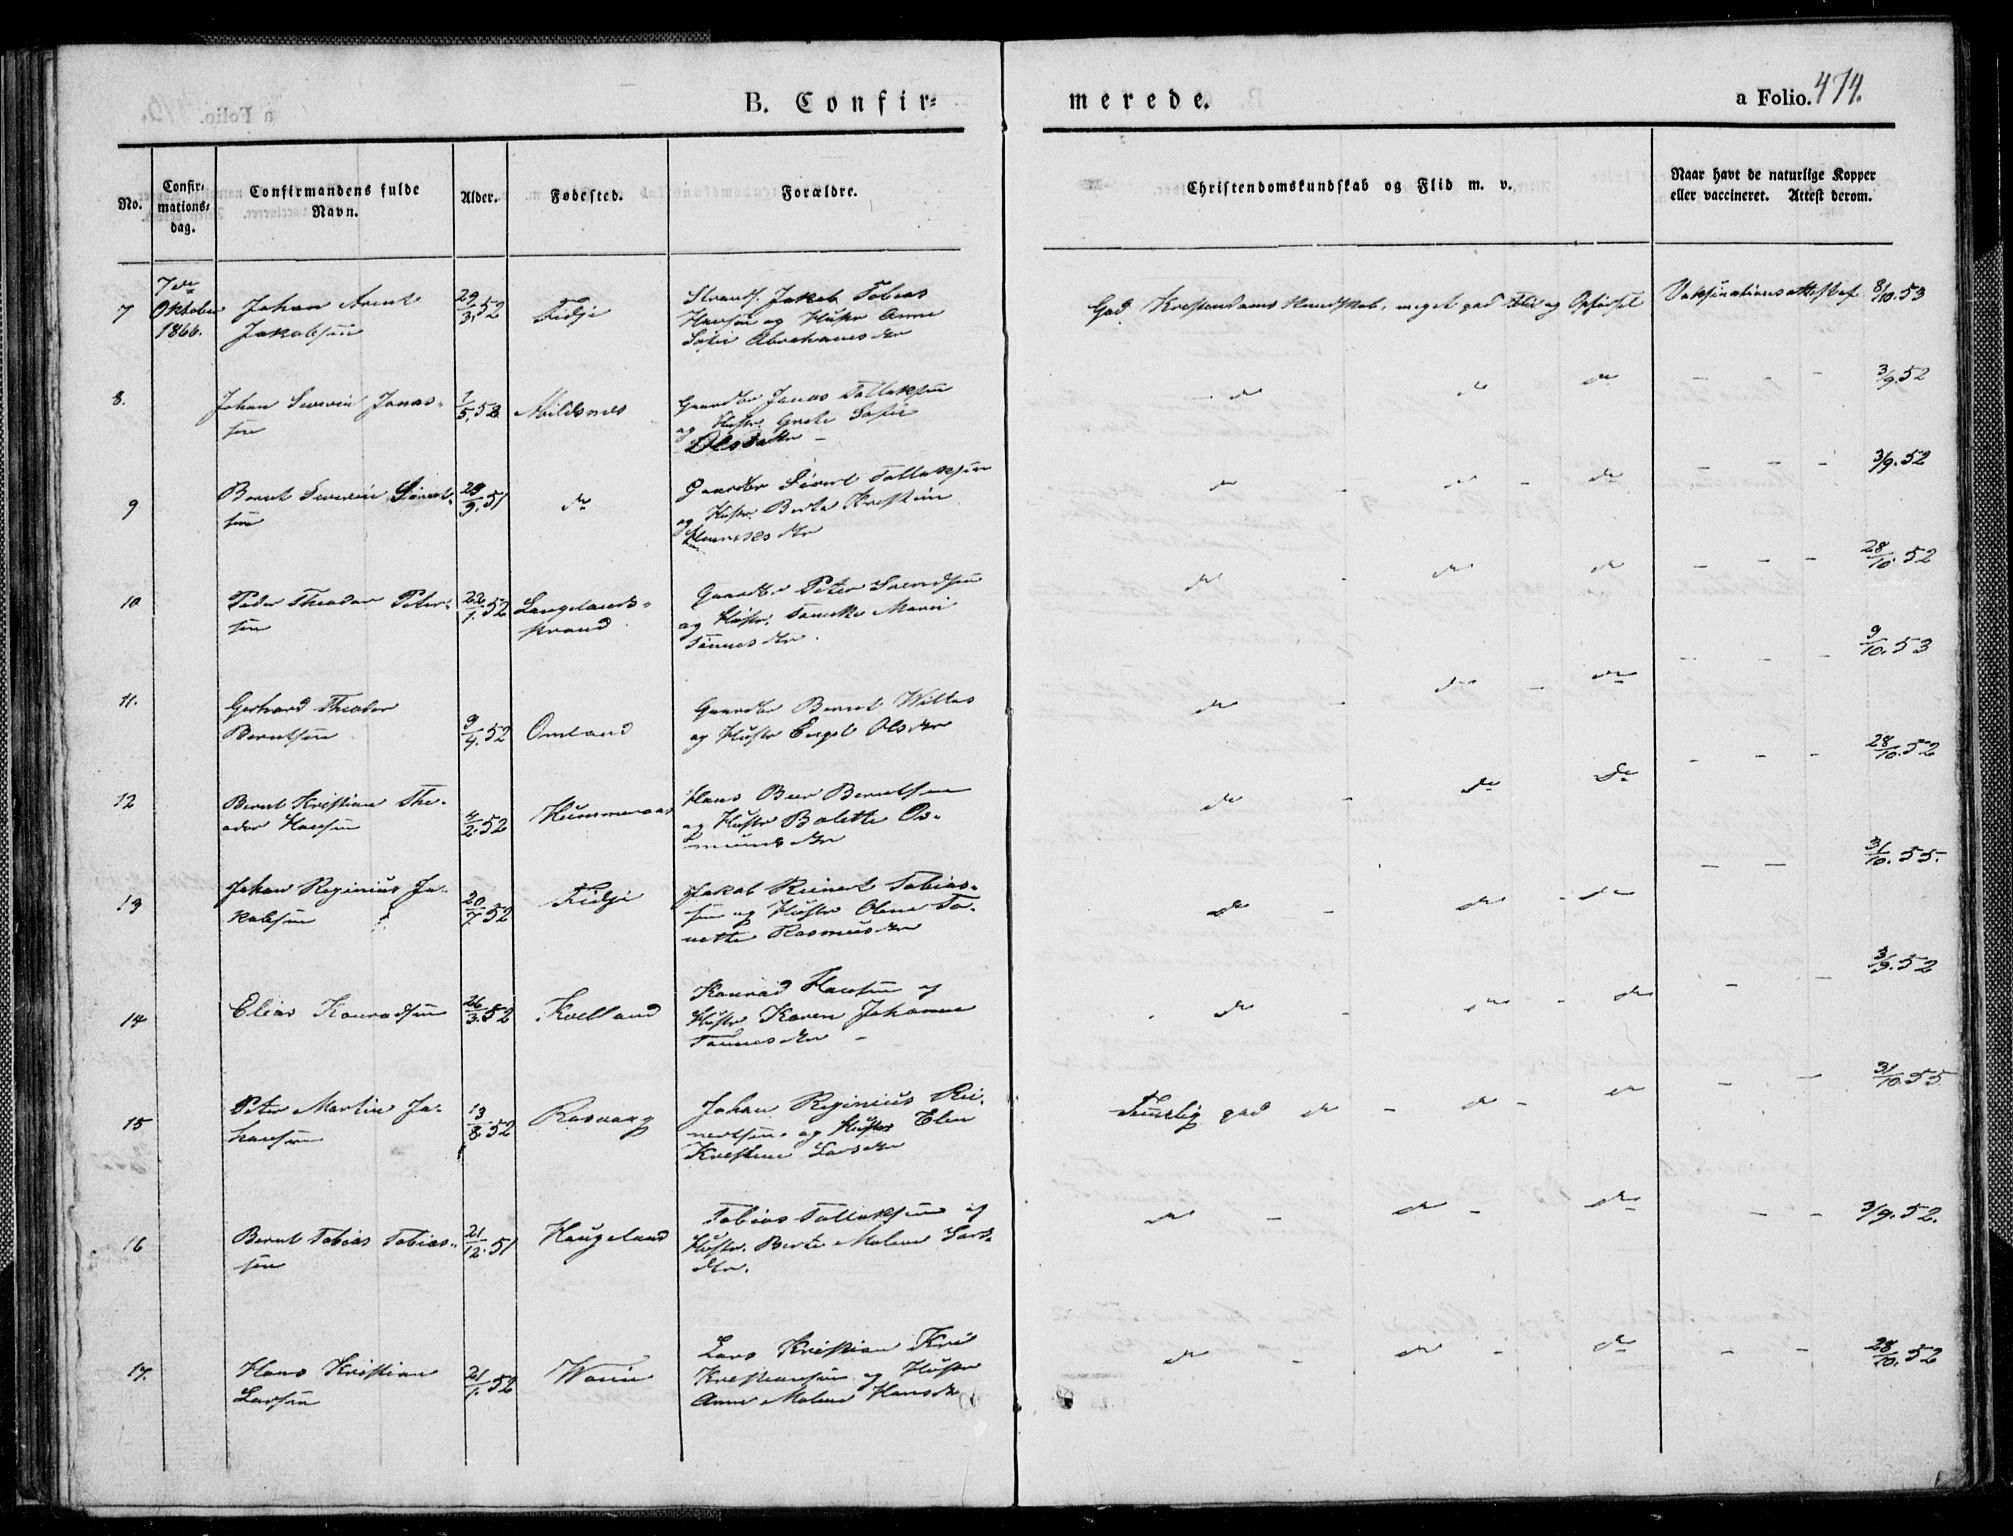 B. Confir=
merede.
a Folio. 474.
No.
Confir=
mations=
dag.
Confirmandens fulde
Navn.
Alder.
Fødested.
Forældre.
Christendomskundskab og Flid m. v.
Naar havt de naturlige Kopper
eller vaccineret. Attest derom.
7
7de
Oktober
1866.
Johan Arent
Jakobsen
29/3.52
Fidje
Strands. Jakob Tobias
Hansen og Hustr Anne
Sofie Abrahamsdtr
God Kristendoms Kundskab, meget god Flid og Opførsel
Vaksinationsattest af 8/10.53
8.
Johan Severin Jonas-
sen
7/5.52
Mildsnes
Gaardbr Jonas Tollaksen
og Hustr. Grete Sofie
Olsdattr –
do do do – – – 3/9.52
9
Bernt Severin Sivert-
sen
29/9.51
do
Gaardbr Sivert Tollaksen
og Hustr. Berte Kristine
dtr
do – do – do – – – 3/9.52
10
Peder Theodor Peter-
sen
22/1.52
Langelands-
strand
Gaardbr Peter Svendsen
og Hustr. Tomette Marie
Tønnesdtr.
do – do do – – – 28/10.52
11.
Gerhard Theodor
Berntsen
9/4.52
Omland
Gaardbr Bernt Willas
og Hustr Engel Olsdtr
do – do – do – – – 9/10.53
12
Bernt Kristian The-
odor Hansen
4/2.52
Hummeraas
Hans Beer Berntsen
og Hustr Bolette Os-
mundsdtr
do – do do – – – 28/10.52
13
Johan Reginius Ja-
kobsen
20/7.52
Fidje
Jakob Reinert Tobias-
sen og Hustr Olene To-
nette Rasmusdtr
do – do – do – – 31/10.55.
14
Elias Konradsen
26/3.52
Kvelland
Konrad Hansen og
Hustr Karen Johanne
Tønnesdtr –
do – do – do – – 3/9.52
15
Peter Martin Jo-
hansen
13/8.52
Rasvaag
Johan Reginius Rei-
nertsen og Hustr Elen
Kristine Larsdtr
Temelig god do – do – do – – 31/10.55
16
Bernt Tobias Tobias-
sen
21/12.51
Haugeland
Tobias Tollaksen og
Hustr. Berte Malene Lars-
dtr.
do – do – do – – 3/9.52.
17.
Hans Kristian
Larsen
21/1.52
Lars Kristian
Kristiansen og Hustr
Anne Malene Hansdtr
do – do – do – – 28/10.52